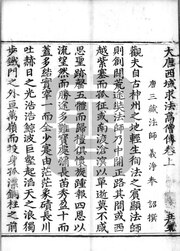 大唐西域求法高僧傳卷上
唐三藏法師義淨奉 詔撰
觀夫自古神州之地輕生徇法之賓顯法師
則創闢荒途奘法師乃中開正路其間或西
越紫塞而孤征或南渡滄溟以單逝莫不咸
思聖跡罄五體而歸禮俱懷旋踵報四恩以
流望然而勝途多難寶處彌長苗秀盈十而
蓋多結實罕一而全少寔由茫茫象磧長川
吐赫日之光浩浩鯨波巨壑起滔天之浪獨
步鐵門之外亘萬嶺而投身孤漂銅柱之前